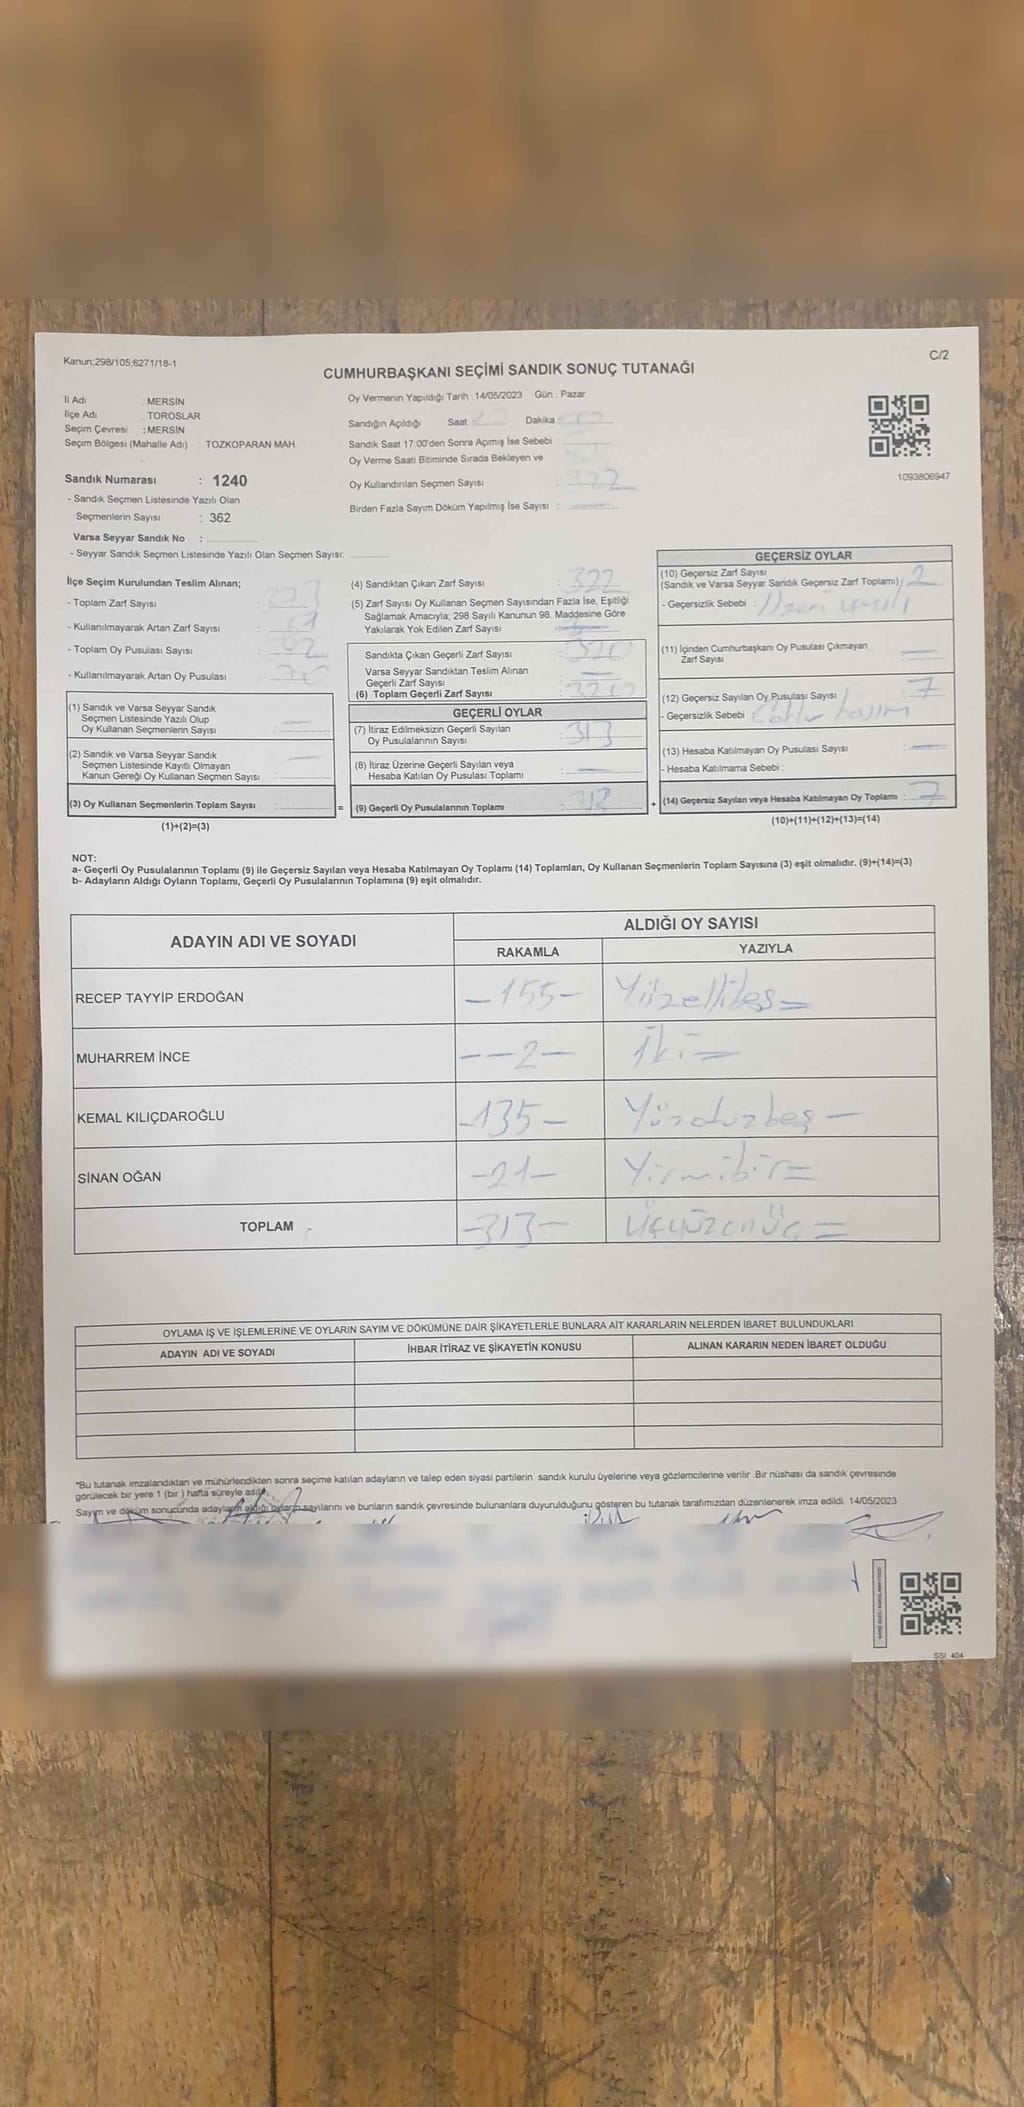 Kanun;298/105;6271/18-1
C/2
CUMHURBAŞKANI SEÇİMİ SANDIK SONUÇ TUTANAĞI
İl Adı : MERSİN
İlçe Adı : TOROSLAR
Seçim Çevresi : MERSİN
Seçim Bölgesi (Mahalle Adı) : TOZKOPARAN MAH.
Sandık Numarası : 1240
- Sandık Seçmen Listesinde Yazılı Olan
Seçmenlerin Sayısı : 362
Varsa Seyyar Sandık No :
- Seyyar Sandık Seçmen Listesinde Yazılı Olan Seçmen Sayısı:
Oy Vermenin Yapıldığı Tarih : 14/05/2023 Gün : Pazar
Sandığın Açıldığı Saat Dakika :
Sandık Saat 17:00'den Sonra Açımış İse Sebebi :
Oy Verme Saati Bitiminde Sırada Bekleyen ve
Oy Kullandırılan Seçmen Sayısı : 322
Birden Fazla Sayım Döküm Yapılmış İse Sayısı :
1093806947
İlçe Seçim Kurulundan Teslim Alınan;
- Toplam Zarf Sayısı :
- Kullanılmayarak Artan Zarf Sayısı :
- Toplam Oy Pusulası Sayısı :
- Kullanılmayarak Artan Oy Pusulası :
(1) Sandık ve Varsa Seyyar Sandık
Seçmen Listesinde Yazılı Olup
Oy Kullanan Seçmenlerin Sayısı :
(2) Sandık ve Varsa Seyyar Sandık
Seçmen Listesinde Kayıtlı Olmayan
Kanun Gereği Oy Kullanan Seçmen Sayısı :
(3) Oy Kullanan Seçmenlerin Toplam Sayısı :
(1)+(2)=(3)
(4) Sandıktan Çıkan Zarf Sayısı : 322
(5) Zarf Sayısı Oy Kullanan Seçmen Sayısından Fazla İse, Eşitliği
Sağlamak Amacıyla; 298 Sayılı Kanunun 98. Maddesine Göre
Yakılarak Yok Edilen Zarf Sayısı
Sandıkta Çıkan Geçerli Zarf Sayısı : 320
Varsa Seyyar Sandıktan Teslim Alınan
Geçerli Zarf Sayısı
(6) Toplam Geçerli Zarf Sayısı : 320
GEÇERLİ OYLAR
(7) İtiraz Edilmeksizin Geçerli Sayılan
Oy Pusulalarının Sayısı : 313
(8) İtiraz Üzerine Geçerli Sayılan veya
Hesaba Katılan Oy Pusulası Toplamı :
= (9) Geçerli Oy Pusulalarının Toplamı :
GEÇERSİZ OYLAR
(10) Geçersiz Zarf Sayısı
(Sandık ve Varsa Seyyar Sandık Geçersiz Zarf Toplamı) : 2
- Geçersizlik Sebebi : Üzeri yazılı
(11) İçinden Cumhurbaşkanı Oy Pusulası Çıkmayan
Zarf Sayısı
(12) Geçersiz Sayılan Oy Pusulası Sayısı : 7
- Geçersizlik Sebebi
(13) Hesaba Katılmayan Oy Pusulası Sayısı :
- Hesaba Katılmama Sebebi :
+ (14) Geçersiz Sayılan veya Hesaba Katılmayan Oy Toplamı : 7
(10)+(11)+(12)+(13)=(14)
NOT:
a- Geçerli Oy Pusulalarının Toplamı (9) ile Geçersiz Sayılan veya Hesaba Katılmayan Oy Toplamı (14) Toplamları, Oy Kullanan Seçmenlerin Toplam Sayısına (3) eşit olmalıdır. (9)+(14)=(3)
b- Adayların Aldığı Oyların Toplamı, Geçerli Oy Pusulalarının Toplamına (9) eşit olmalıdır.
ADAYIN ADI VE SOYADI
ALDIĞI OY SAYISI
RAKAMLA YAZIYLA
RECEP TAYYİP ERDOĞAN -155- Yüzellibeş=
MUHARREM İNCE --2- İki=
KEMAL KILIÇDAROĞLU -135- Yüzotuzbeş-
SİNAN OĞAN -21- Yirmibir=
TOPLAM -313- Üçyüzonüç=
OYLAMA İŞ VE İŞLEMLERİNE VE OYLARIN SAYIM VE DÖKÜMÜNE DAİR ŞİKAYETLERLE BUNLARA AİT KARARLARIN NELERDEN İBARET BULUNDUKLARI
ADAYIN ADI VE SOYADI İHBAR İTİRAZ VE ŞİKAYETİN KONUSU ALINAN KARARIN NEDEN İBARET OLDUĞU
*Bu tutanak imzalandıktan ve mühürlendikten sonra seçime katılan adayların ve talep eden siyasi partilerin sandık kurulu üyelerine veya gözlemcilerine verilir. Bir nüshası da sandık çevresinde
görülecek bir yere 1 (bir) hafta süreyle asılır.
Sayım ve döküm sonucunda adayların aldığı oyların sayılarını ve bunların sandık çevresinde bulunanlara duyurulduğunu gösteren bu tutanak tarafımızdan düzenlenerek imza edildi. 14/05/2023
SSI 404